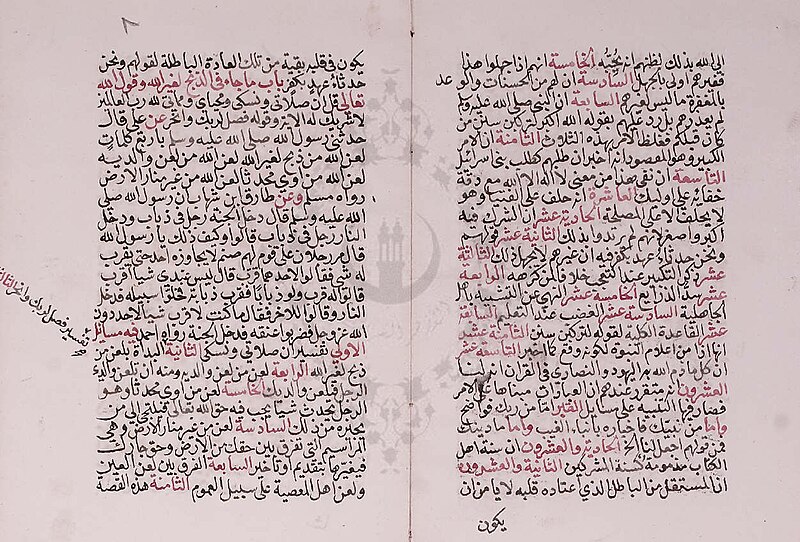 الى الله بذلك لظنهم انه يحبه الخامسة انهم اذا جهلوا هذا
فغيرهم اولى بالجهل السادسة ان لهم من الحسنات والوعد
بالمغفرة ما ليس لغيرهم السابعة ان النبي صلى الله عليه وسلم
لم يعذرهم بل رد عليهم بقوله الله اكبر لتركبن سنن من
كان قبلكم فغلظ الامر بهذه الثلاث الثامنة ان الامر
الكبير وهو المقصود انه اخبر ان طلبهم كطلب بني اسرائيل
التاسعة ان نفي هذا من معنى لا اله الا الله مع دقته
وخفائه على اوليك العاشرة انه حلف على الفتيا وهو
لا يحلف الا على المصلحة الحادية عشر ان الشرك فيه
اكبر واصغر لانهم لم يرتدوا بذلك الثانية عشر قولهم
ونحن حدثاء عهد بكفر فيه ان غيرهم لا يجهل ذلك الثالثة
عشر ذكر التكبير عند التعجب خلافا لمن كرهه الرابعة
عشر سد الذرايع الخامسة عشر النهي عن التشبه باهل
الجاهلية السادسة عشر الغضب عند التعليم السابعة
عشر القاعدة الكلية لقوله لتركبن سنن الثامنة عشر
انها ذا من اعلام النبوة لكونه وقع كما اخبر التاسعة عشر
ان كل ما ذم الله به اليهود والنصارى في القران انه لنا
العشرون انه متقرر عندهم ان العبادات مبناها على الامر
فصار فيها التنبيه على مسايل القبر اما من ربك فواضح
واما من نبيك فاخباره بانباء الغيب واما ما دينك
فمن قولهم اجعل لنا الخ الحادية والعشرون ان سنة اهل
الكتاب مذمومة كسنة المشركين الثانية والعشرون
ان المستقل من الباطل الذي اعتاده قلبه لا يامن ان
يكون
يكون في قلبه بقية من تلك العادة الباطلة لقولهم ونحن
حدثاء عهد بكفر باب ما جاء في الذبح لغير الله وقول الله
تعالى قل ان صلاتي ونسكي ومحياي ومماتي لله رب العالمين
لا شريك له الاية وقوله فصل لربك وانحر عن علي قال
حدثني رسول الله صلى الله عليه وسلم باربع كلمات
لعن الله من ذبح لغير الله لعن الله من لعن والديه
لعن الله من اوى محدثا لعن الله من غير منار الارض
رواه مسلم وعن طارق ابن شهاب ان رسول الله صلى
الله عليه وسلم قال دخل الجنة رجل في ذباب ودخل
النار رجل في ذباب قالوا وكيف ذلك يا رسول الله
قال مر رجلان على قوم لهم صنم لا يجاوزه احد حتى يقرب
له شيء فقالوا لاحدهما قرب قال ليس عندي شيئا اقرب
قالوا له قرب ولو ذبابا فقرب ذبابا فخلوا سبيله فدخل
النار وقالوا للاخر فقال ما كنت لاقرب شيئا لاحد دون
الله عز وجل فضربوا عنقه فدخل الجنة رواه احمد فيه مسايل
الاولى تفسير ان صلاتي ونسكي الثانية البداة بلعن من
تفسير فصل لربك وانحر الثالثة
ذبح لغير الله الرابعة لعن من لعن والديه ومنه ان تلعن والدي
الرجل فيلعن والديك الخامسة لعن من اوى محدثا وهو
الرجل يحدث شيئا يجب فيه حق الله تعالى فيلتجي الى من
يجيره من ذلك السادسة لعن من غير منار الارض وهي
المراسيم التي تفرق بين حقك من الارض وحق جارك
فيغيرها بتقديم او تاخير السابعة الفرق بين لعن المعين
ولعن اهل المعصية على سبيل العموم الثامنة هذه القصة